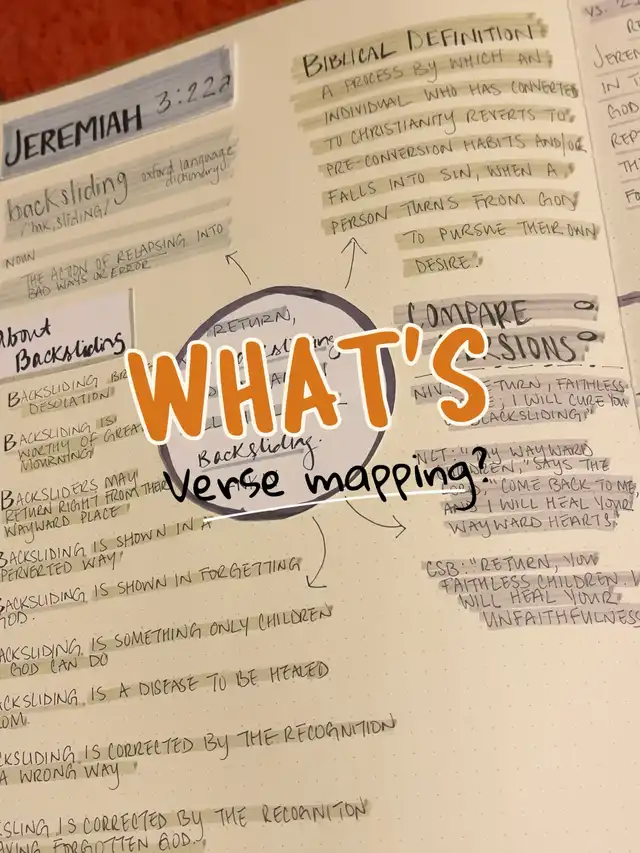 JEREMIAH 3:22a
backsliding oxford language
dictionary
/bak,sliding/
NOUN
THE ACTION OF RELAPSING INTO
BAD WAYS OR ERROR
About
Backsliding
BACKSLIDING
DESOLATION
BACKSLIDING IS
WORTHY OF GREAT
MOURNING
BACKSLIDERS MAY
RETURN RIGHT FROM THEIR
WAYWARD PLACE
BACKSLIDING IS SHOWN IN A
PERVERTED WAY
BACKSLIDING IS SHOWN IN FORGETTING
GOD.
ACKSLIDING IS SOMETHING ONLY CHILDREN
GOD CAN DO
ACKSLIDING IS A DISEASE TO BE HEALED
OM.
CKSLIDING IS CORRECTED BY THE RECOGNITION
A WRONG WAY
SLING IS CORRECTED BY THE RECOGNITON
AVING FORGOTTEN GOD.
RETURN,
Backsliding.
WHAT'S
verse mapping?
BIBLICAL DEFINITION
A PROCESS BY WHICH AN
INDIVIDUAL WHO HAS CONVERTED
TO CHRISTIANITY REVERTS TO
PRE-CONVERSION HABITS AND/OR
FALLS INTO SIN, WHEN A
PERSON TURNS FROM GOD
TO PURSUE THEIR OWN
DESIRE.
COMPARE
RSIONS
NIV: ETURN, FAITHLESS
E, I WILL CURE YOU
ACKSLIDING"
NLT: "MY WAYWARD
REN," SAYS THE
"COME BACK TO ME
I WILL HEAL YOUR
WAYWARD HEARTS"
CSB: "RETURN, YOU
FAITHLESS CHILDREN. I
WILL HEAL YOUR
UNFAITHFULNESS
VS. 2
RE
JEREM
IN T
GOD
REP
TH
FO